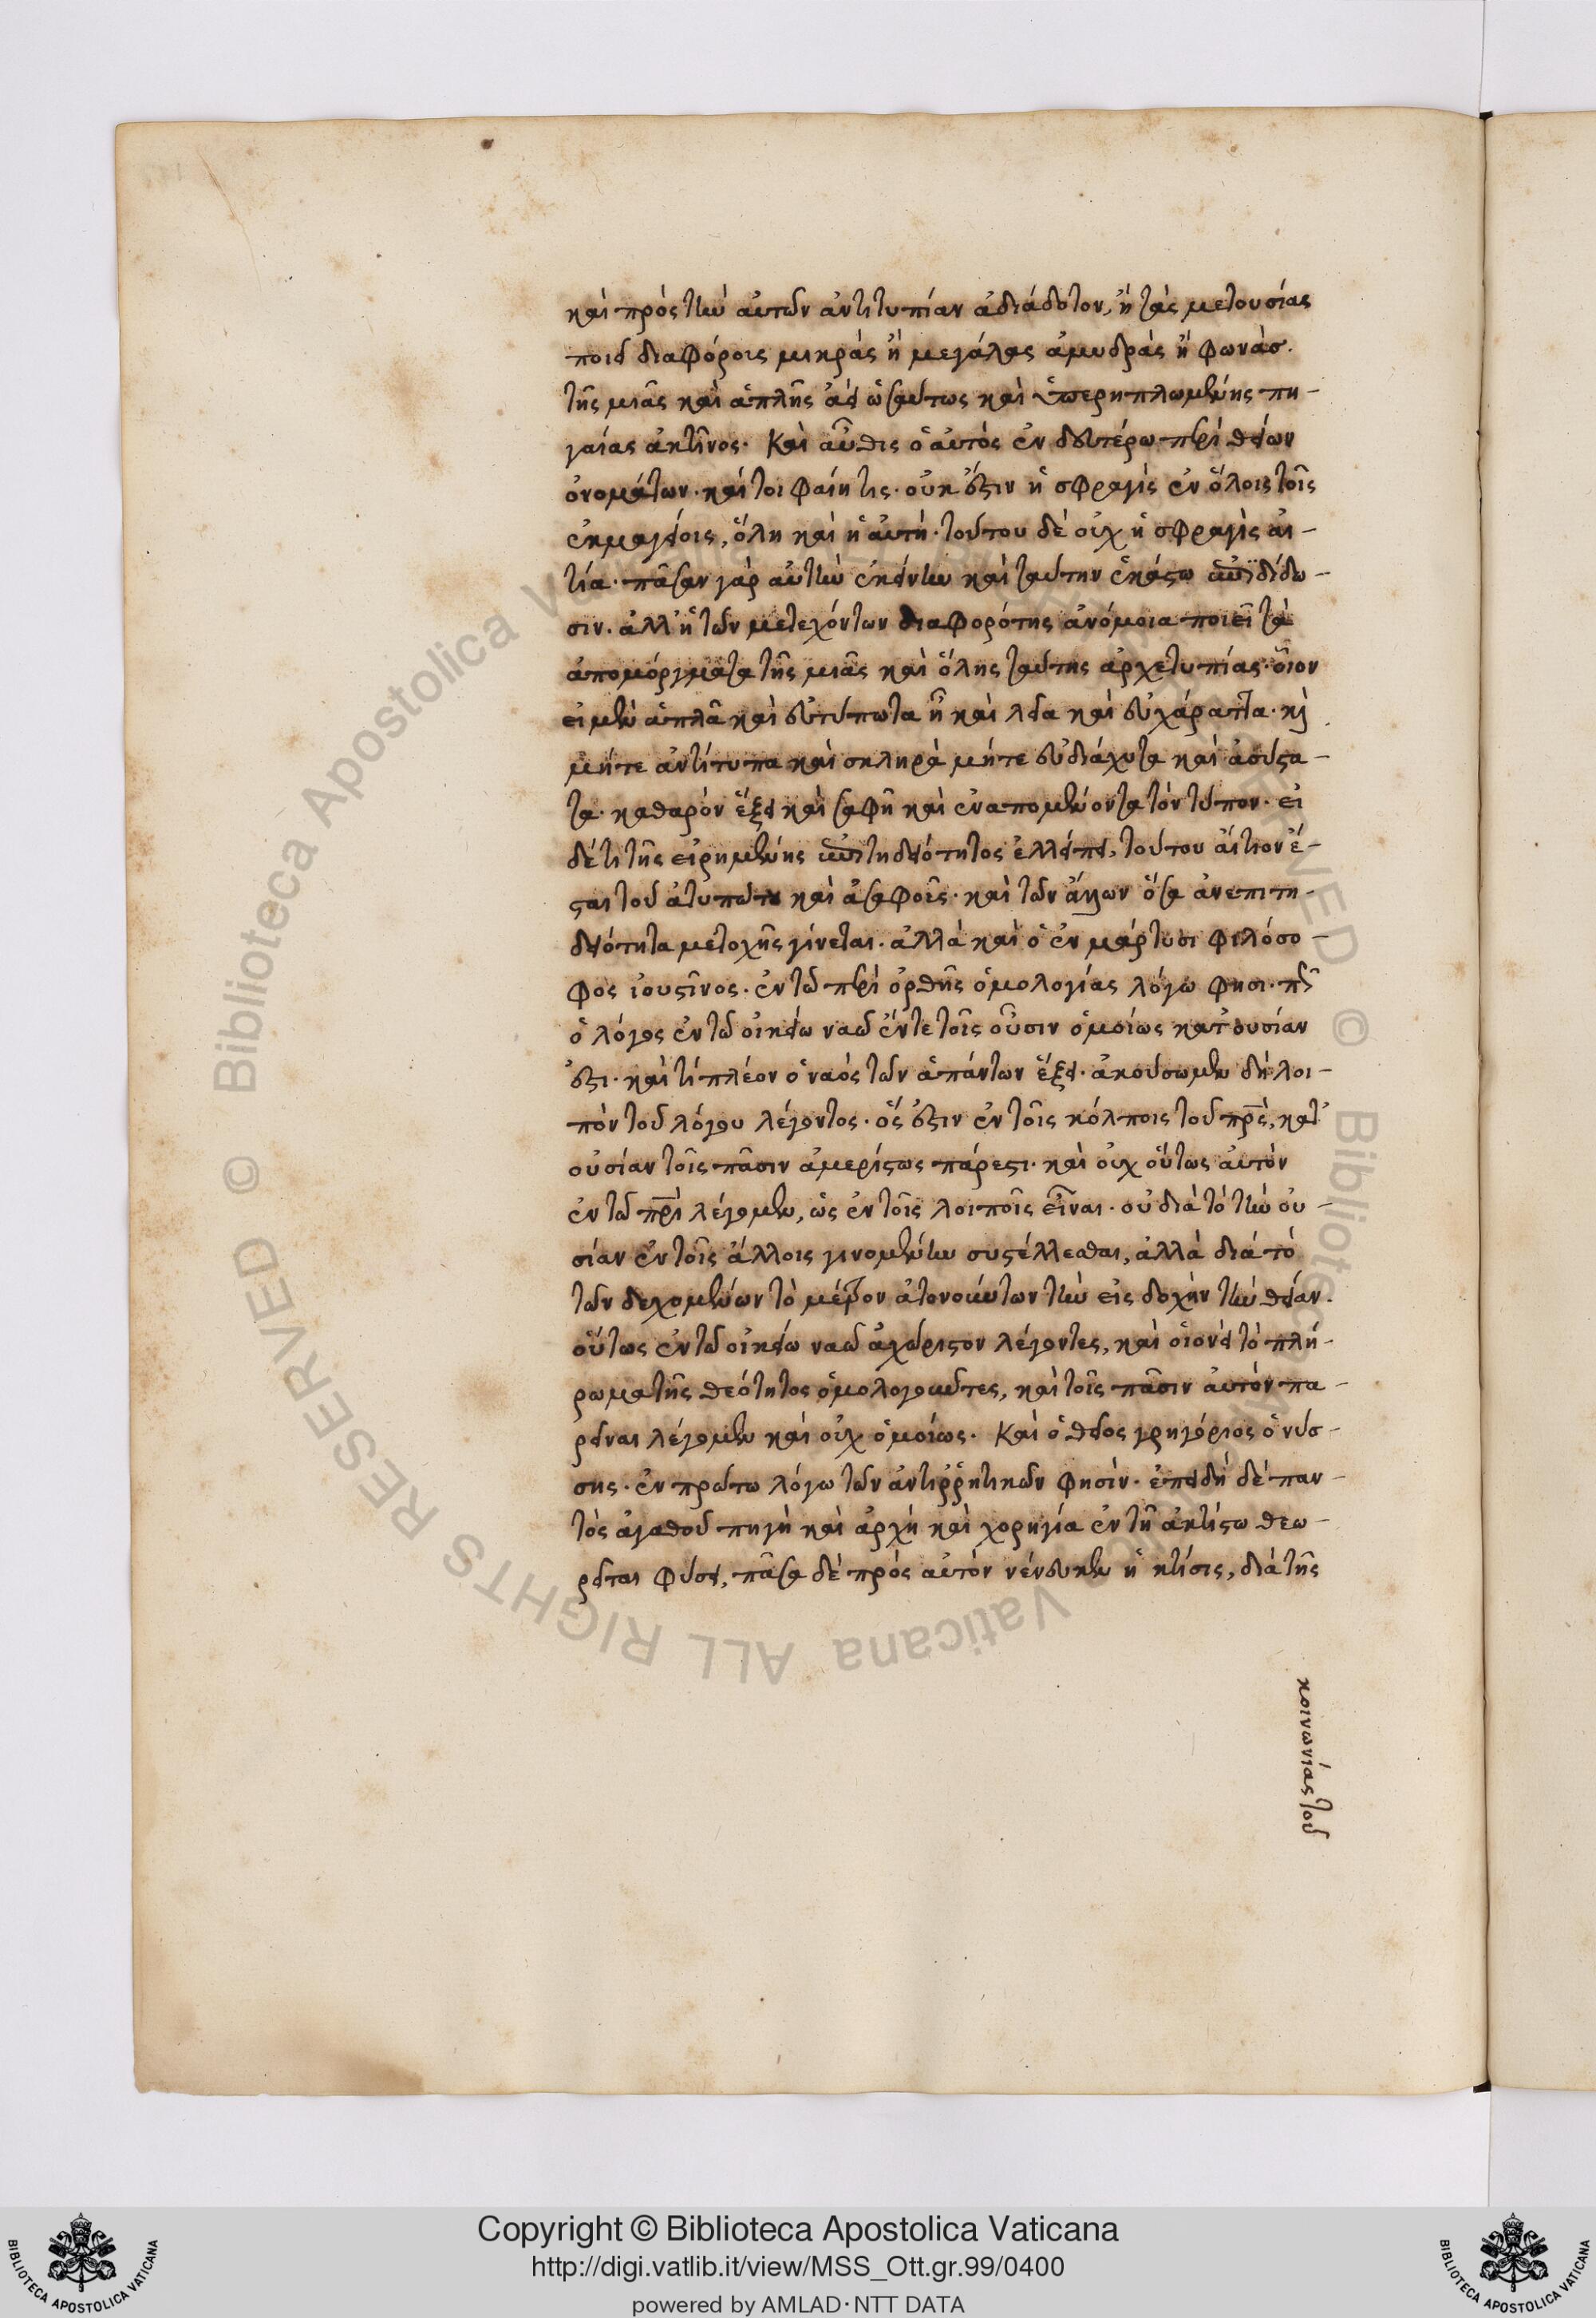 καὶ πρὸς τὴν αὐτῶν ἀντιτυπίαν ἀδιάδοτον, ἢ τὰς μετουσίας
ποιεῖ διαφόροις μικρὰς ἢ μεγάλας ἀμυδρὰς ἢ φωνὰς.
τῆς μιᾶς καὶ ἁπλῆς ἀεὶ ὡσαύτως καὶ ὑπερηπλωμένης πη-
γαίας ἀκτῖνος. Καὶ αὖθις ὁ αὐτὸς ἐν δευτέρω περὶ θείων
ὀνομάτων. καίτοι φαίη τις. οὐκ ἔστιν ἡ σφραγὶς ἐν ὅλοις τοῖς
ἐκμαγείοις, ὅλη καὶ ἡ αὐτή. τούτου δὲ οὐχ ἡ σφραγὶς αἰ-
τία. πᾶσαν γὰρ αὐτὴν ἐκείνην καὶ ταύτην ἑκάστω ἐπιδίδω-
σιν. ἀλλ' ἡ τῶν μετεχόντων διαφορότης ἀνόμοια ποιεῖ τὰ
ἀπομόργματα τῆς μιᾶς καὶ ὅλης ταύτης ἀρχετυπίας. οἷον
εἰ μὲν ἁπλᾶ καὶ εὐτύπωτα ἦ καὶ λεῖα καὶ εὐχάρακτα. κὶ
μήτε ἀντίτυπα καὶ σκληρὰ μήτε εὐδιάχυτα καὶ ἀσύστα-
τα. καθαρὸν ἕξει καὶ σαφῆ καὶ ἐναπομένοντα τὸν τύπον. εἰ
δέ τι τῆς εἰρημένης ἐπιτηδειότητος ἐλλείπει, τούτου αἴτιον ἔ-
σται τοῦ ἀτυπώτου καὶ ἀσαφοῖς. καὶ τῶν ἄλλων ὅσα ἀνεπιτη-
δειότητα μετοχῆς γίνεται. ἀλλὰ καὶ ὁ ἐν μάρτυσι φιλόσο-
φος ἰουστῖνος. ἐν τῶ περὶ ὀρθῆς ὁμολογίας λόγω φησι. πῶς
ὁ λόγος ἐν τῶ οἰκείω ναῶ ἔν τε τοῖς οὖσιν ὁμοίως κατ' οὐσίαν
ἐστι. καὶ τί πλέον ὁ ναὸς τῶν ἁπάντων ἕξει. ἀκούσωμεν δὴ λοι-
πὸν τοῦ λόγου λέγοντος. ὅς ἐστιν ἐν τοῖς κόλποις τοῦ πρς, κατ'
οὐσίαν τοῖς πᾶσιν ἀμερίστως πάρεστι. καὶ οὐχ οὕτως αὐτὸν
ἐν τῶ πρι λέγομεν, ὡς ἐν τοῖς λοιποῖς εἶναι. οὐ διὰ τὸ τὴν οὐ-
σίαν ἐν τοῖς ἄλλοις γινομένην συστέλλεσθαι, ἀλλὰ διὰ τὸ
τῶν δεχομένων τὸ μέτρον ἀτονούντων τὴν εἰς δοχὴν τὴν θείαν.
οὕτως ἐν τῶ οἰκείω ναῶ ἀχώριστον λέγοντες, καὶ οἱονεὶ τὸ πλή-
ρωμα τῆς θεότητος ὁμολογοῦντες, καὶ τοῖς πᾶσιν αὐτὸν πα-
ρεῖναι λέγομεν καὶ οὐχ ὁμοίως. Καὶ ὁ θεῖος γρηγόριος ὁ νύσ-
σης. ἐν πρώτω λόγω τῶν ἀντιρρητικῶν φησὶν. ἐπειδὴ δὲ παν-
τὸς ἀγαθοῦ πηγὴ καὶ ἀρχὴ καὶ χορηγία ἐν τῇ ἀκτίστω θεω-
ρεῖται φύσει, πᾶσα δὲ πρὸς αὐτὸν νένευκεν ἡ κτίσις, διὰ τῆς
κοινωνίας τοῦ
Copyright © Biblioteca Apostolica Vaticana
http://digi.vatlib.it/view/MSS_Ott.gr.99/0400
powered by AMLAD·NTT DATA
BIBLIOTECA APOSTOLICA VATICANA
BIBLIOTECA APOSTOLICA VATICANA
© Biblioteca Apostolica Vaticana ALL RIGHTS RESERVED